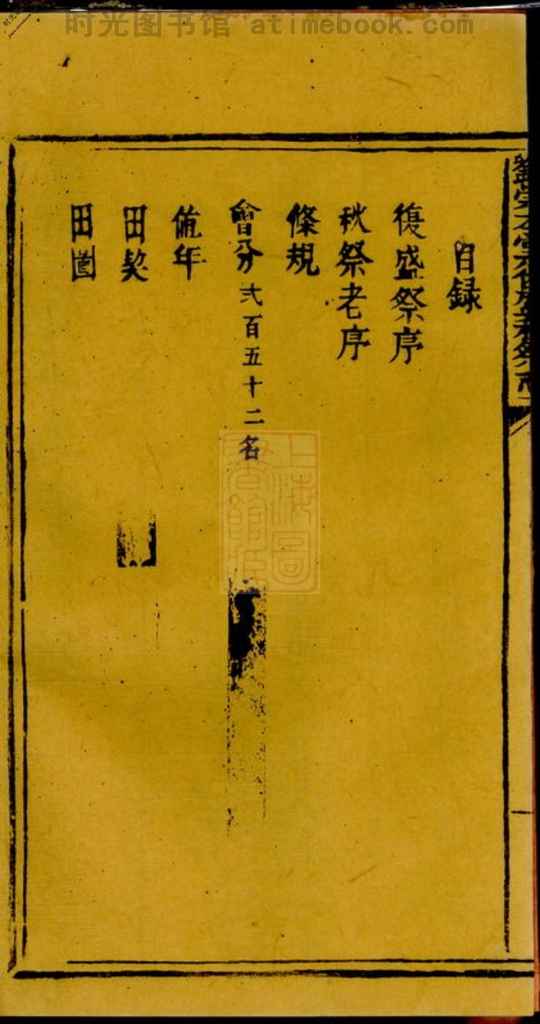 时光图书馆 - atimebook.com
目録
復盛祭序
秋祭老序
條規
會分 弍百五十二名
值年
田契
田啚